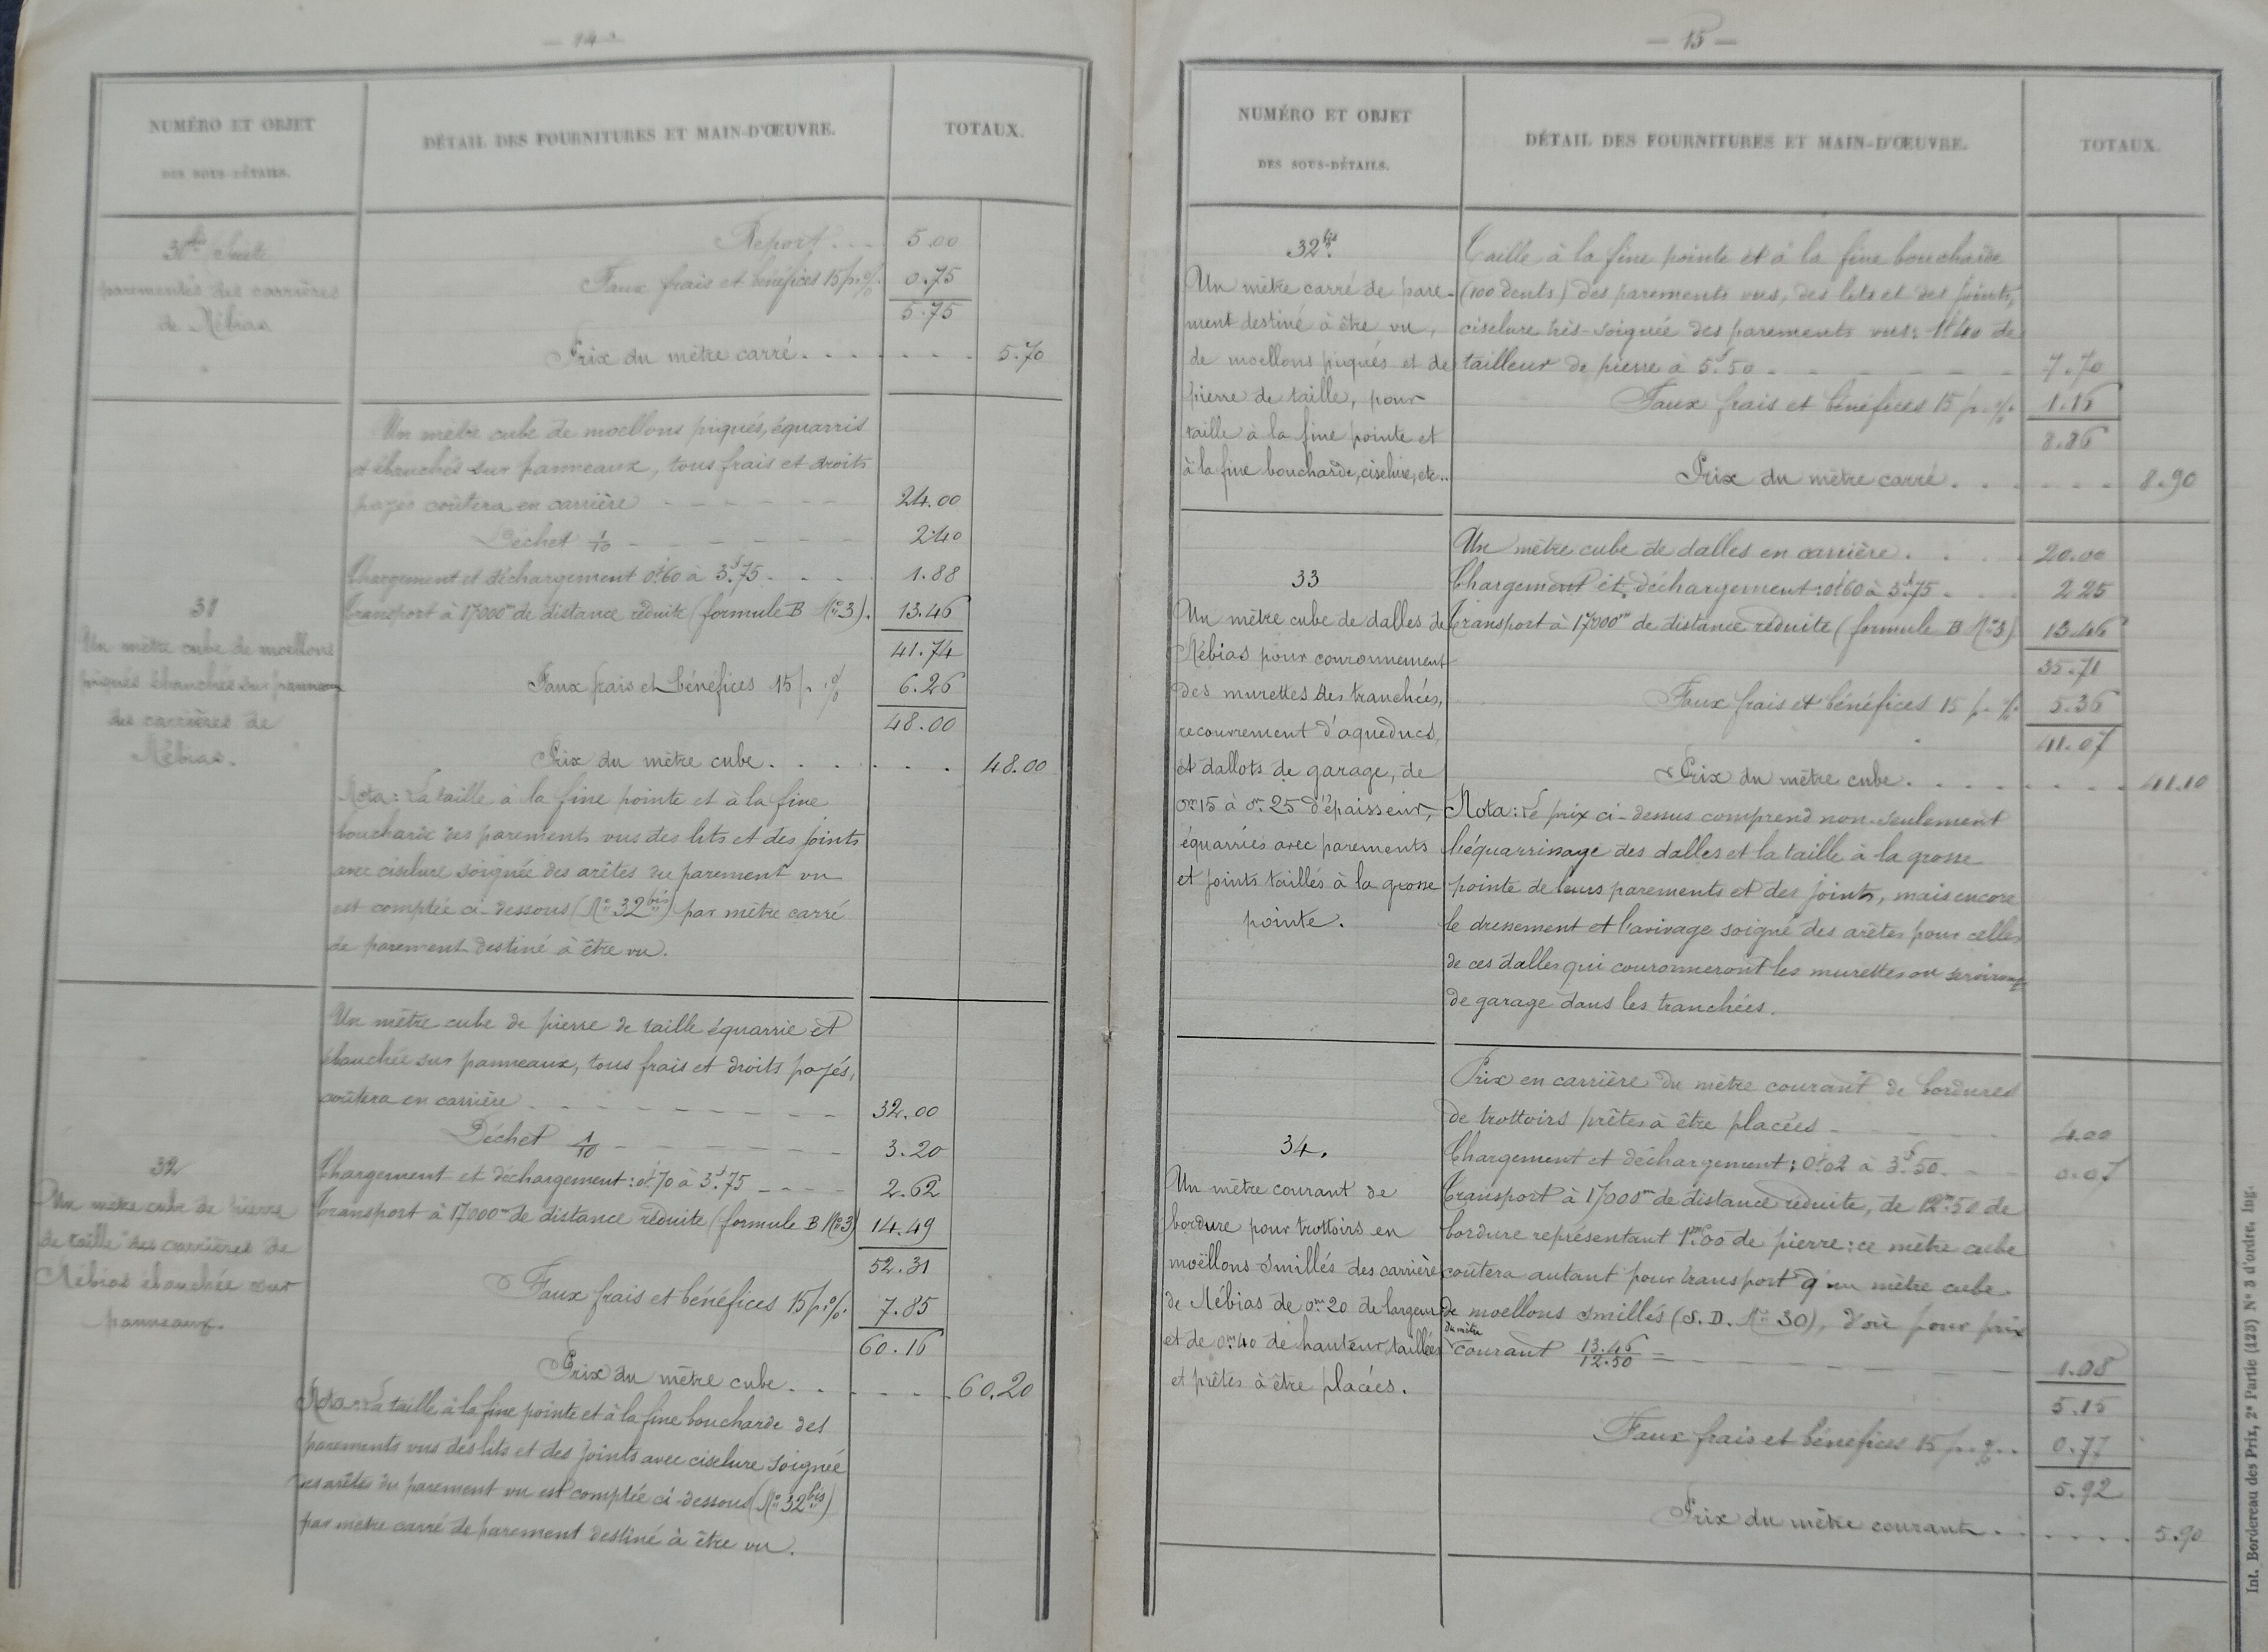 — 14 —
NUMÉRO ET OBJET
DES SOUS-DÉTAILS.
DÉTAIL DES FOURNITURES ET MAIN-D'ŒUVRE.
TOTAUX.
(Suite)
parementés des carrières
de Nébias
Report . . . 5.00
Faux frais et bénéfices 15 p. % 0.75
5.75
Prix du mètre carré . . . . . . . . 5.70
31
Un mètre cube de moellons
piqués ébauchés sur panneaux
des carrières de
Nébias.
Un mètre cube de moellons piqués, équarris
et ébauchés sur panneaux, tous frais et droits
payés coûtera en carrière - - - - - - 24.00
Déchet 1/10 - - - - - - 2.40
Chargement et déchargement 0j.60 à 3f.75 . . . . 1.88
Transport à 17000m de distance réduite (formule B No 3). 13.46
41.74
Faux frais et bénéfices 15 p. % 6.26
48.00
Prix du mètre cube . . . . . . . 48.00
Nota: La taille à la fine pointe et à la fine
boucharde des parements vus des lits et des joints
avec ciselure soignée des arêtes du parement vu
est comptée ci-dessous (No 32bis) par mètre carré
de parement destiné à être vu.
32
Un mètre cube de pierre
de taille des carrières de
Nébias ébauchée sur
panneaux.
Un mètre cube de pierre de taille équarrie et
ébauchée sur panneaux, tous frais et droits payés,
coûtera en carrière - - - - - - - - 32.00
Déchet 1/10 - - - - - - 3.20
Chargement et déchargement: 0j.70 à 3f.75 - - - - 2.62
Transport à 17000m de distance réduite (formule B No 3) 14.49
52.31
Faux frais et bénéfices 15 p. %. 7.85
60.16
Prix du mètre cube . . . . . . . 60.20
Nota: La taille à la fine pointe et à la fine boucharde des
parements vus des lits et des joints avec ciselure soignée
des arêtes du parement vu est comptée ci-dessous (No 32bis)
par mètre carré de parement destiné à être vu.
— 15 —
NUMÉRO ET OBJET
DES SOUS-DÉTAILS.
DÉTAIL DES FOURNITURES ET MAIN-D'ŒUVRE.
TOTAUX.
32bis.
Un mètre carré de pare-
ment destiné à être vu,
de moellons piqués et de
pierre de taille, pour
taille à la fine pointe et
à la fine boucharde, ciselure, etc..
Taille à la fine pointe et à la fine boucharde
(100 dents) des parements vus, des lits et des joints,
ciselure très-soignée des parements vus: 1j.40 de
tailleur de pierre à 5f.50 - - - - - - 7.70
Faux frais et bénéfices 15 p. % 1.16
8.86
Prix du mètre carré . . . . . . . 8.90
33
Un mètre cube de dalles de
Nébias pour couronnement
des murettes des tranchées,
recouvrement d'aqueducs,
et dallots de garage, de
0m15 à 0m.25 d'épaisseur,
équarries avec parements
et joints taillés à la grosse
pointe.
Un mètre cube de dalles en carrière . . . . 20.00
Chargement et déchargement: 0j.60 à 3f.75 . . . 2.25
Transport à 17000m de distance réduite (formule B No 3) 13.46
35.71
Faux frais et bénéfices 15 p. %. 5.36
41.07
Prix du mètre cube . . . . . . . . . 41.10
Nota: Le prix ci-dessus comprend non-seulement
l'équarrissage des dalles et la taille à la grosse
pointe de leurs parements et des joints, mais encore
le dressement et l'avivage soigné des arêtes pour celles
de ces dalles qui couronneront les murettes ou serviront
de garage dans les tranchées.
34.
Un mètre courant de
bordure pour trottoirs en
moëllons smillés des carrières
de Nébias de 0m.20 de largeur
et de 0m.40 de hauteur, taillées
et prêtes à être placées.
Prix en carrière du mètre courant de bordures
de trottoirs prêtes à être placées - - - - - 4.00
Chargement et déchargement: 0j.02 à 3f.50. - - 0.07
Transport à 17000m de distance réduite, de 12m.50 de
bordure représentant 1mc.00 de pierre: ce mètre cube
coûtera autant pour transport qu'un mètre cube
de moellons smillés (S.D. No 30), d'où pour prix
du mètre
courant 13.46/12.50 = - - - - - - - - 1.08
5.15
Faux frais et bénéfices 15 p. %.. 0.77
5.92
Prix du mètre courant . . . . . . 5.90
Int. Bordereau des Prix, 2e Partie (123) No 3 d'ordre. Ing.